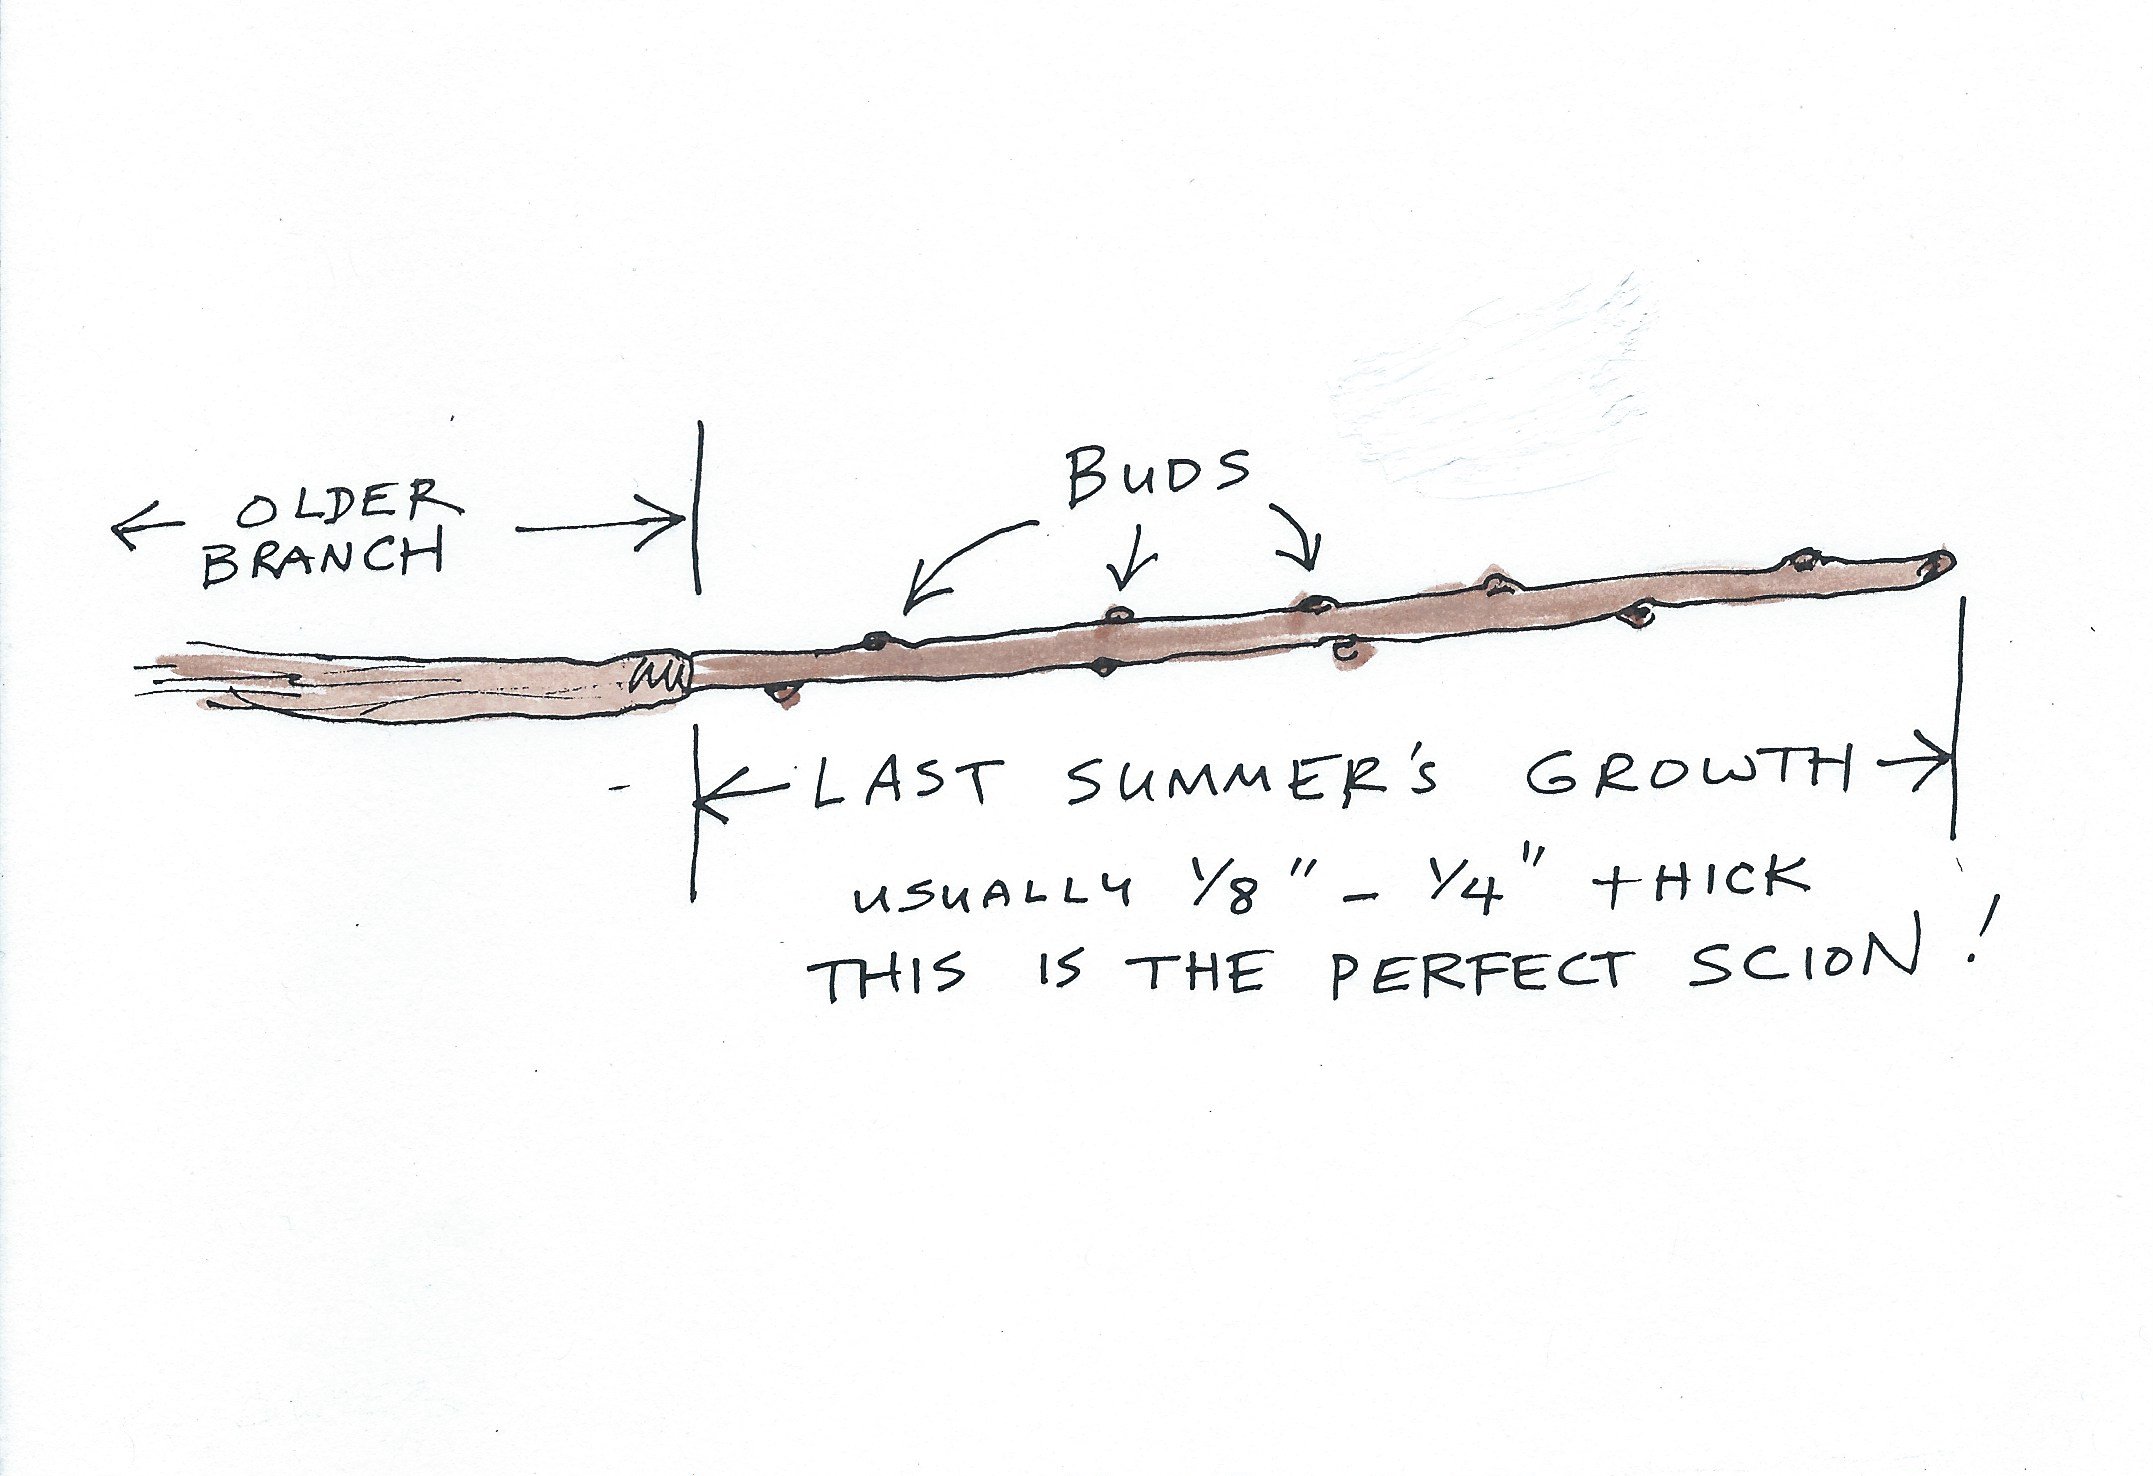 OLDER
BRANCH
BUDS
LAST SUMMER'S GROWTH
USUALLY 1/8" - 1/4" THICK
THIS IS THE PERFECT SCION!